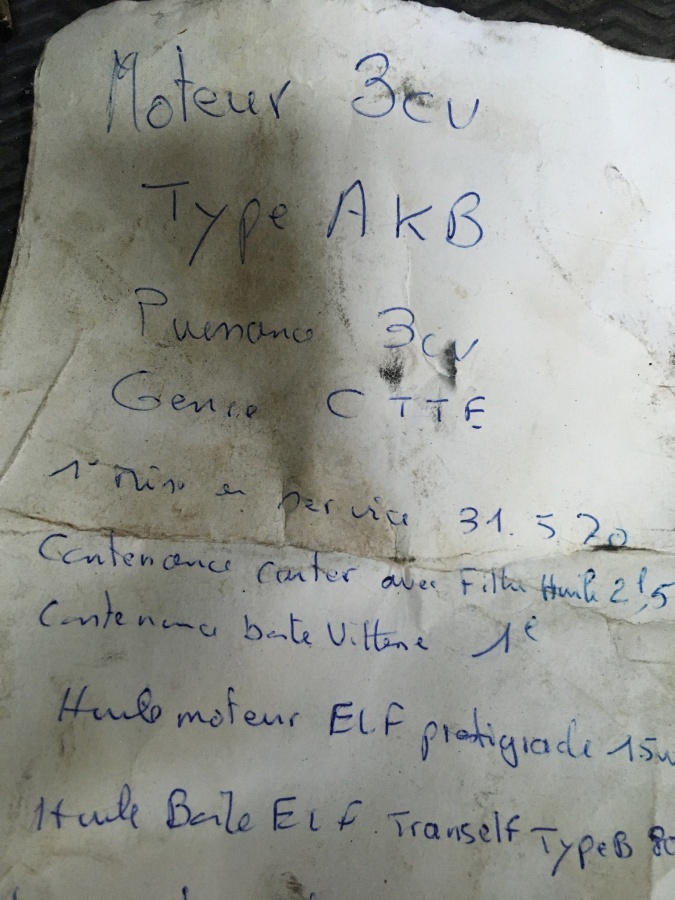 Moteur 3cv
Type AKB
Puissance 3cv
Genre CTTE
1e mise en service 31.5 70
Contenance carter avec Filtre Huile 2l,5
Contenance boite Vittese 1l
Huile moteur ELF prestigrade 15w
Huile Boite ELF Tranself Type B 80